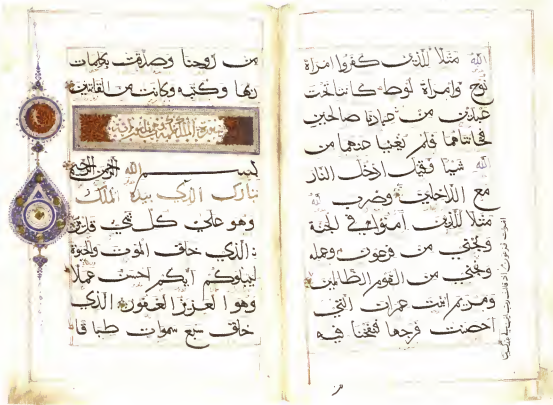 الله مثلا للذين كفروا امراة
نوح وامراة لوط كانتا تحت
عبدين من عبادنا صالحين
فخانتاهما فلم يغنيا عنهما من
الله شيا وقيل ادخلا النار
مع الداخلين وضرب الله
مثلا للذين امنوا في الجنة
ونجني من فرعون وعمله
ونجني من القوم الظالمين
ومريم ابنت عمران التي
احصنت فرجها فنفخنا فيه
امرات فرعون اذ قالت رب ابن لي عندك بيتا
من روحنا وصدقت بكلمات
ربها وكتبه وكانت من القانتين
سورة الملك
بسم الله الرحمن الرحيم
تبارك الذي بيده الملك
وهو على كل شي قدير
الذي خلق الموت والحيوة
ليبلوكم ايكم احسن عملا
وهو العزيز الغفور الذي
خلق سبع سموات طباقا